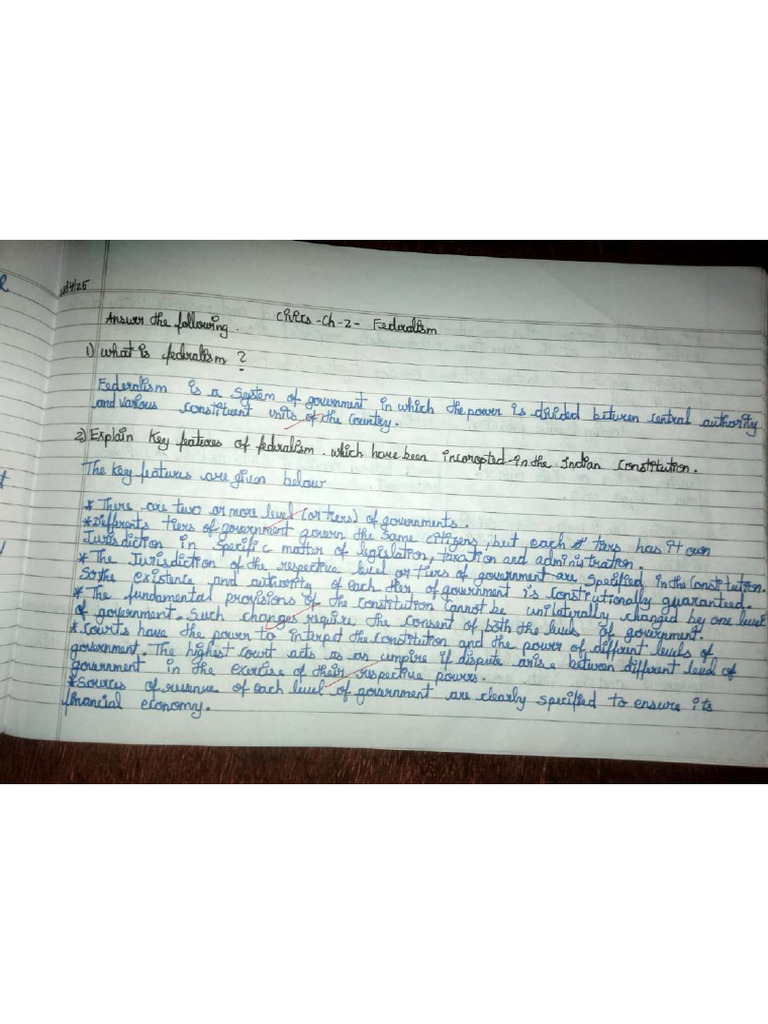 Answer the following. Civics - Ch - 2 - Federalism
1) What is fedralism ?
Federalism is a System of government in which the power is divided between central authority
and various constituent units of the Country.
2) Explain Key features of fedralism. which have been incoropted in the Indian Constitution.
The Key features are given below
* There are two or more level (or tiers) of governments.
* Differents tiers of government govern the Same citizens, but each tiers has it own
Jurisdiction in Specific matter of legislation, taxation and administration.
* The Jurisdiction of the respective level or tiers of government are Specified in the Constitution.
So the existence and authority of each tier of government is constitutionally guaranteed.
* The fundamental provisions of the constitution cannot be unilaterally changed by one level
of government. Such changes require the consent of both the levels of government.
* Courts have the power to interped the Constitution and the power of diffrent levels of
government. The highest court acts as an umpire if dispute arise between different level of
government in the exercise of their respective powers.
* Sources of revenue of each level of government are clearly specified to ensure its
financial economy.